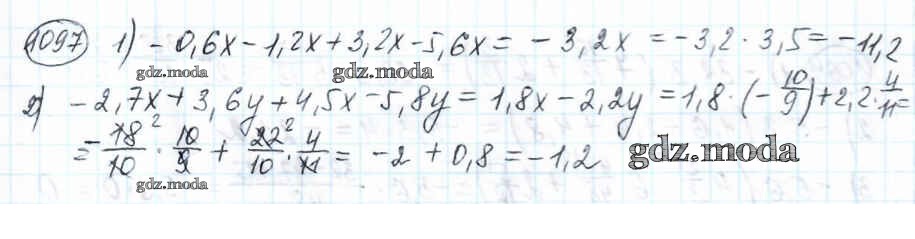 1097 1) - 0,6x - 1,2x + 3,2x - 5,6x = - 3,2x = - 3,2 · 3,5 = - 11,2
gdz.moda gdz.moda
2) - 2,7x + 3,6y + 4,5x - 5,8y = 1,8x - 2,2y = 1,8 · (- 10/9) + 2,2 · 4/11 =
= - 18²/10 · 10/9 + 22²/10 · 4/11 = - 2 + 0,8 = - 1,2 gdz.moda
gdz.moda